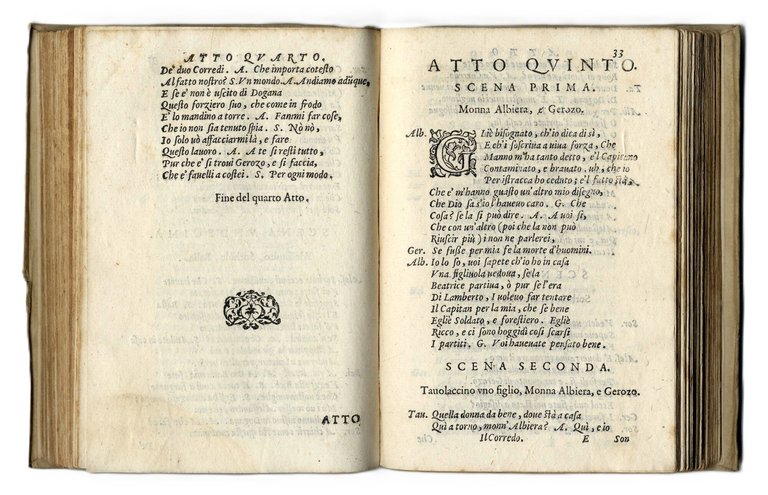 ATTO QVARTO.
De' duo Corredi. A. Che importa cotesto
Al fatto nostro? S. Vn mondo. A. Andiamo adũque,
E se e' non è uscito di Dogana
Questo forziero suo, che come in frodo
E' lo mandino a torre. A. Fammi far cose,
Che io non sia tenuto spia. S. Nò nò,
Io solo uò affacciarmi là, e fare
Questo lauoro. A. A te si resti tutto,
Pur che e' si troui Gerozo, e si faccia,
Che e' fauelli a costei. S. Per ogni modo.
Fine del quarto Atto.
ATTO
33
ATTO QVINTO.
SCENA PRIMA.
Monna Albiera, e Gerozo.
Alb. Gliè bisognato, ch'io dica di sì,
E ch'i soscriua a uiua forza, Che
Manno m'ha tanto detto, e'l Capitano
Contaminato, e brauato. uh, che io
Per istracca ho ceduto; e'l fatto stà,
Che e' m'hanno guasto un'altro mio disegno,
Che Dio sa s'io l'haueuo caro. G. Che
Cosa? se la si può dire. A. A uoi sì,
Che con un'altro (poi che la non può
Riuscir più) i non ne parlerei,
Ger. Se fusse per mia fe la morte d'huomini.
Alb. Io lo so, uoi sapete ch'io ho in casa
Vna figliuola uedoua, se la
Beatrice partiua, ò pur se l'era
Di Lamberto, I uoleuo far tentare
Il Capitan per la mia, che se bene
Egliè Soldato, e forestiero. Egliè
Ricco, e ci sono hoggidì cosi scarsi
I partiti. G. Voi haueuate pensato bene.
SCENA SECONDA.
Tauolaccino vno figlio, Monna Albiera, e Gerozo.
Tau. Quella donna da bene, doue stà a casa
Quì a torno, monn'Albiera? A. Quì, e io
Il Corredo. E Son